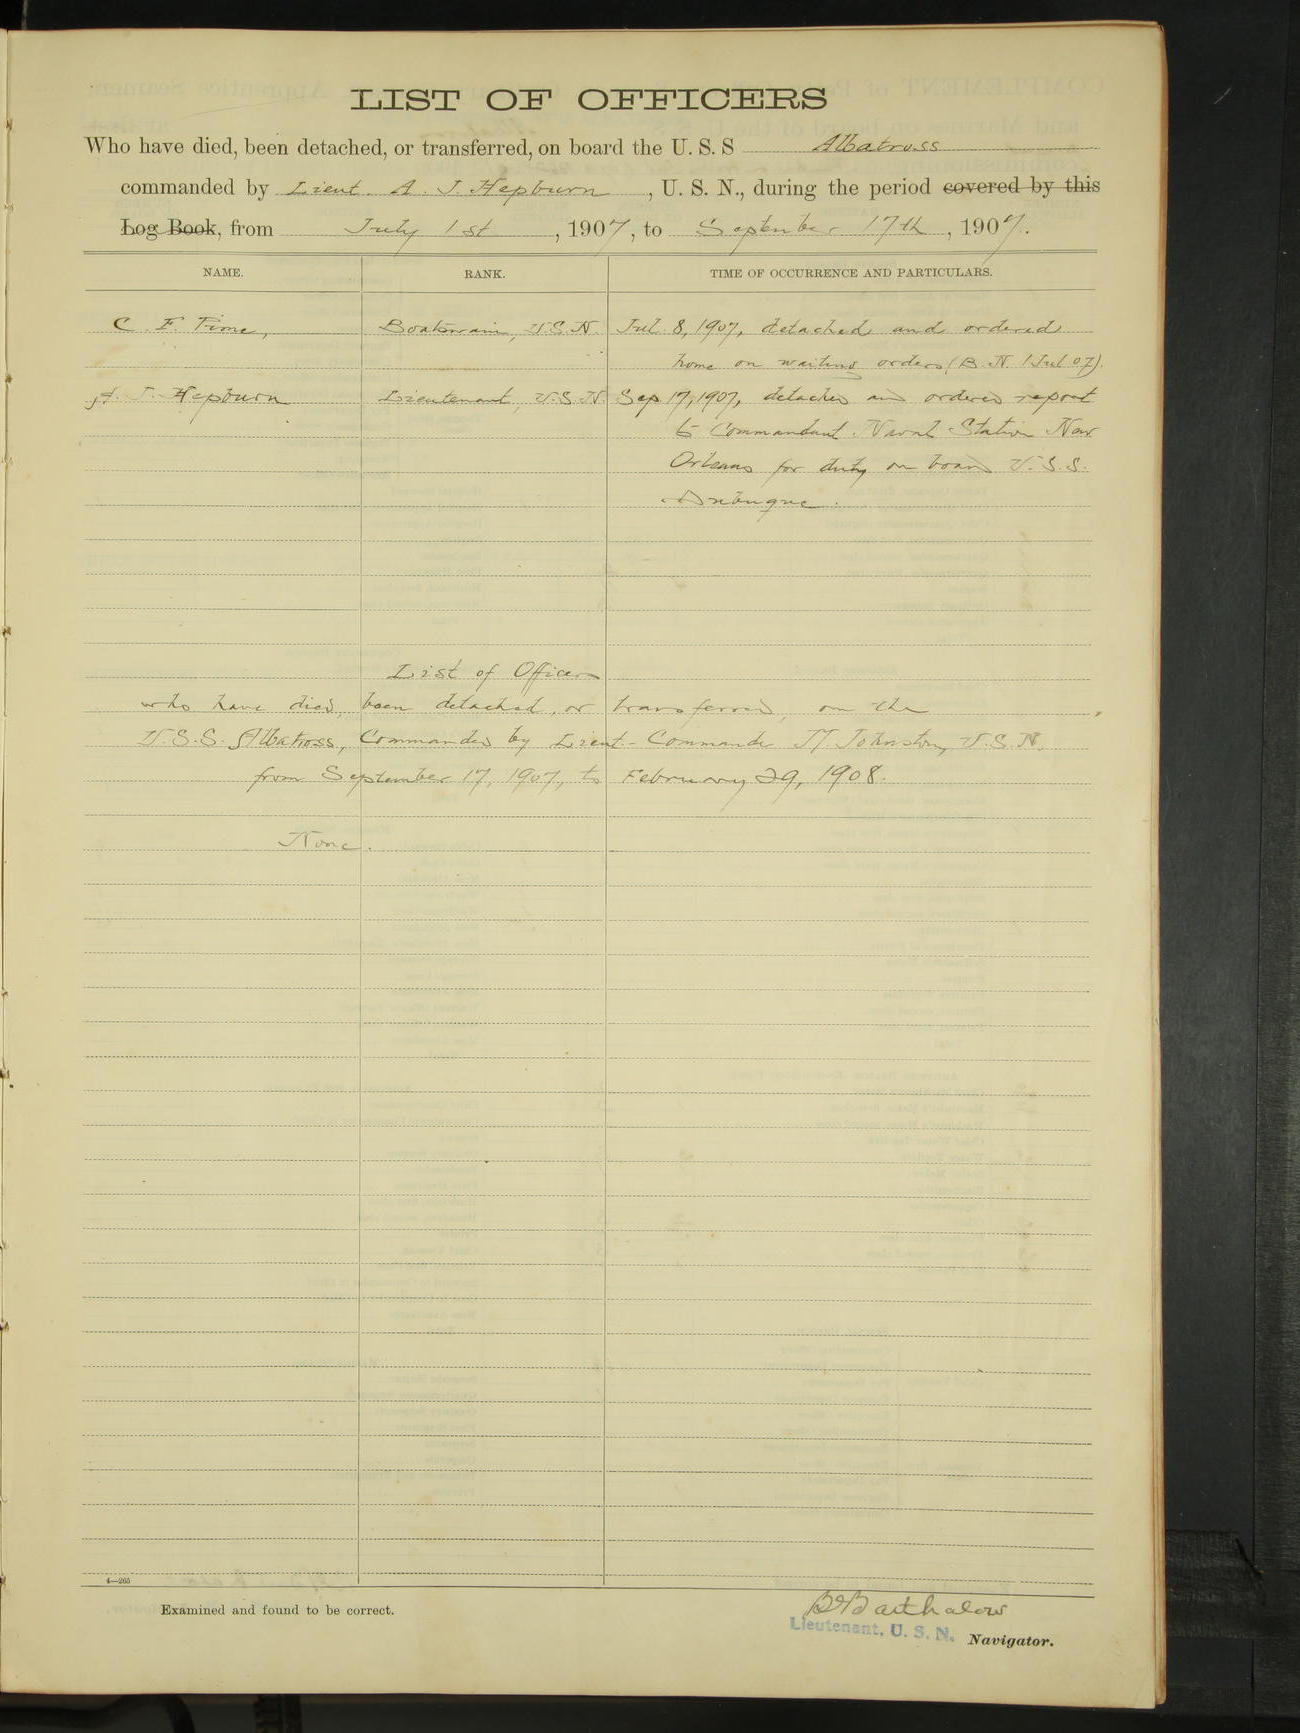 LIST OF OFFICERS
Who have died, been detached, or transferred, on board the U. S. S Albatross
commanded by Lieut. A. J. Hepburn, U. S. N., during the period covered by this
Log Book, from July 1st, 1907, to September 17th, 1907.
NAME. RANK. TIME OF OCCURRENCE AND PARTICULARS.
C. F. Boatswain, U.S.N. Jul. 8, 1907, detached and ordered
home on waiting orders (B. N. 1 Jul 07).
A. J. Hepburn Lieutenant, U.S.N. Sep. 17, 1907, detached and ordered report
to Commandant Naval Station New
Orleans for duty on board U.S.S.
Dubuque.
List of Officers
who have died, been detached, or transferred, on the
U.S.S. Albatross, Commanded by Lieut-Commander M. Johnston, U.S.N.
from September 17, 1907, to February 29, 1908.
None.
4—265
Examined and found to be correct.
Barthalow
Lieutenant, U. S. N. Navigator.